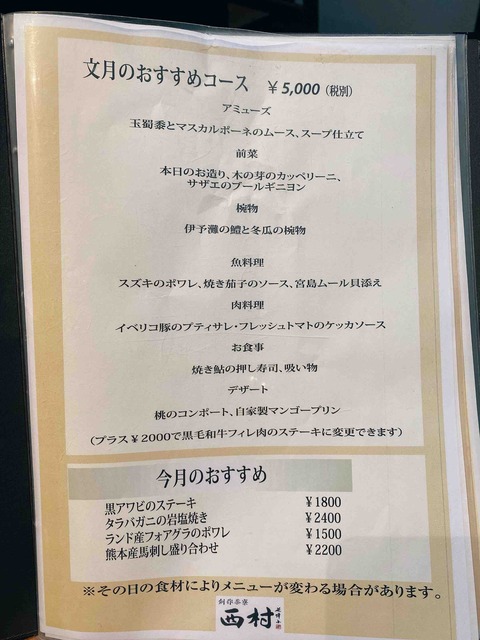 文月のおすすめコース ￥5,000（税別）
アミューズ
玉蜀黍とマスカルポーネのムース、スープ仕立て
前菜
本日のお造り、木の芽のカッペリーニ、
サザエのブールギニヨン
椀物
伊予灘の鱧と冬瓜の椀物
魚料理
スズキのポワレ、焼き茄子のソース、宮島ムール貝添え
肉料理
イベリコ豚のプティサレ・フレッシュトマトのケッカソース
お食事
焼き鮎の押し寿司、吸い物
デザート
桃のコンポート、自家製マンゴープリン
（プラス￥2000で黒毛和牛フィレ肉のステーキに変更できます）
今月のおすすめ
黒アワビのステーキ ￥1800
タラバガニの岩塩焼き ￥2400
ランド産フォアグラのポワレ ￥1500
熊本産馬刺し盛り合わせ ￥2200
※その日の食材によりメニューが変わる場合があります。
西村